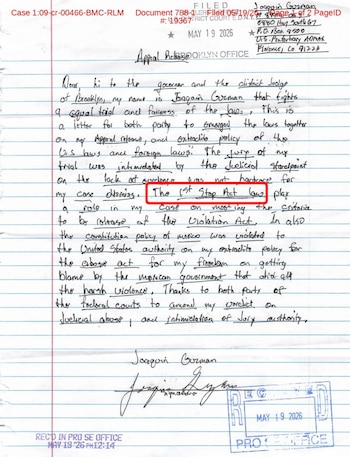 Case 1:09-cr-00466-BMC-RLM Document 788-1 Filed 05/19/26 Page 1 of 2 PageID #: 19367
FILED
DISTRICT COURT E.D.N.Y.
★ MAY 19 2026 ★
BROOKLYN OFFICE
Joaquin Guzman
P.O. Box 8500
U.S. Penitentiary ADMAX
Florence, Co 81226
Appeal Release
Now, hi to the governor and the district Judge
of Brooklyn, my name is Joaquin Guzman that fights
a equal trial and fairness of the law. This is a
letter for both party to the laws together
on my Appeal release, and extradite policy of the
U.S laws and foreign laws. The jury of my
trial was intimidated by the Judicial
on the lack of evidence was not for
my case. The 1st Step Act law play
a role in my case on meeting the criteria
to be release of the Violation Act. In also
the constitution policy of mexico was violated to
the United States authority on my extradite policy for
the abuse act for my freedom on getting
blame by the mexican government that did all
the harsh violence. Thanks to both party of
the federal courts to amend my verdict on
Judicial abuse, and intimidation of Jury authority.
Joaquin Guzman
signature
REC'D IN PRO SE OFFICE
MAY 19 '26 PM12:14
MAY 19 2026
PRO SE OFFICE